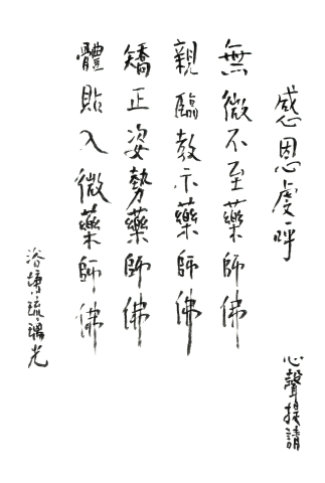 感恩虔呼
心聲提請
無微不至藥師佛
親臨教示藥師佛
矯正姿勢藥師佛
體貼入微藥師佛
浴塘琉璃光